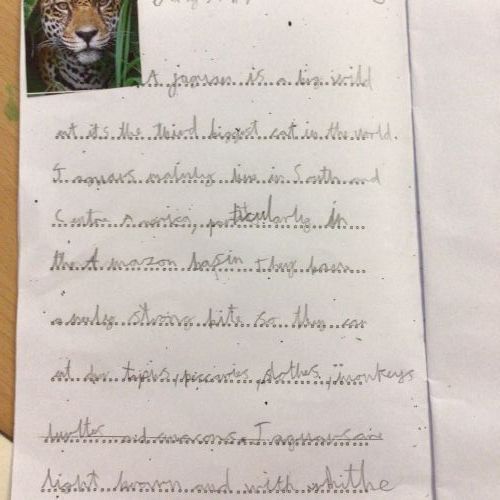 A jaguar is a big wild
cat it's the third biggest cat in the world.
Jaguars mainly live in South and
Centre America, particularly in
the Amazon basin they have
a really strong bite so they can
eat tapirs, peccaries, slothes, monkeys
turtles and
light brown and with whithe